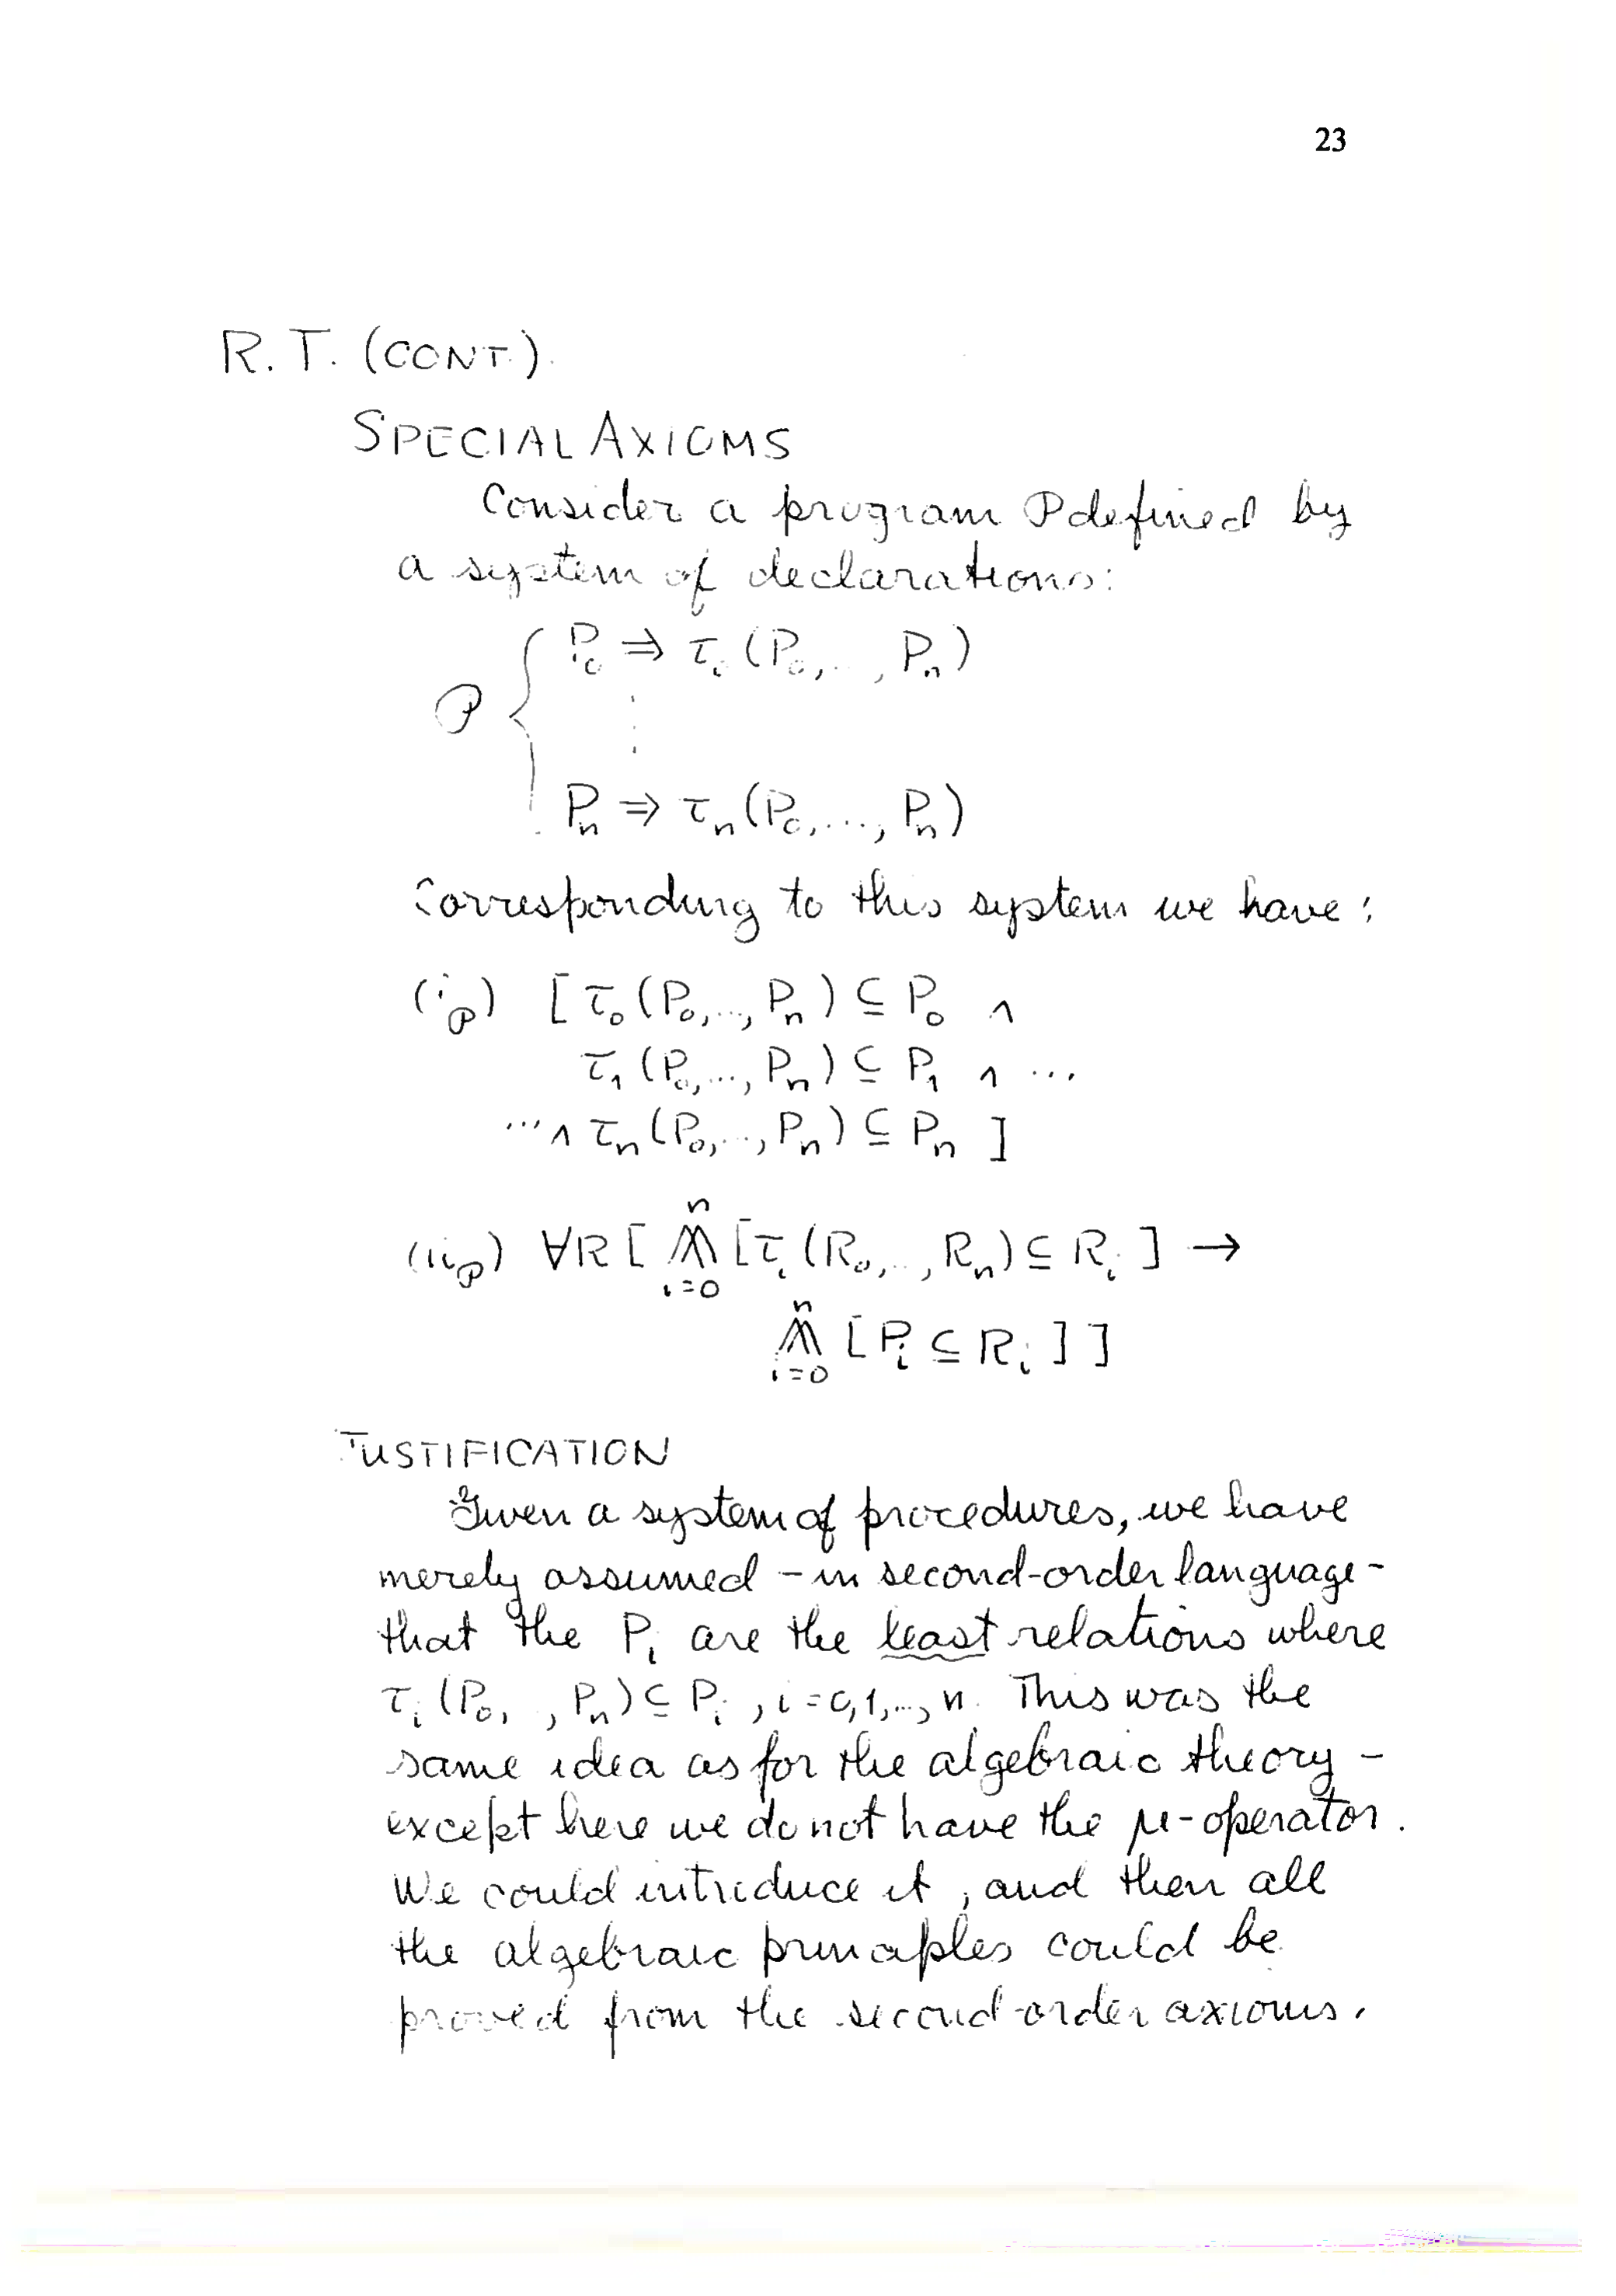 23
R. T. (CONT.)
SPECIAL AXIOMS
Consider a program 𝒫 defined by
a system of declarations:
P₀ ⇒ τ₀(P₀,..., Pₙ)
𝒫 { ⋮
Pₙ ⇒ τₙ(P₀,..., Pₙ)
Corresponding to this system we have:
(i_𝒫) [τ₀(P₀,..., Pₙ) ⊆ P₀ ∧
τ₁(P₀,..., Pₙ) ⊆ P₁ ∧ ...
... ∧ τₙ(P₀,..., Pₙ) ⊆ Pₙ ]
(ii_𝒫) ∀R [ ⋀ⁿᵢ₌₀ [τᵢ(R₀,.., Rₙ) ⊆ Rᵢ ] →
⋀ⁿᵢ₌₀ [Pᵢ ⊆ Rᵢ ] ]
JUSTIFICATION
Given a system of procedures, we have
merely assumed - in second-order language -
that the Pᵢ are the least relations where
τᵢ(P₀, , Pₙ) ⊆ Pᵢ , i = 0,1,..., n. This was the
same idea as for the algebraic theory -
except here we do not have the μ-operator.
We could introduce it, and then all
the algebraic principles could be
proved from the second-order axioms.